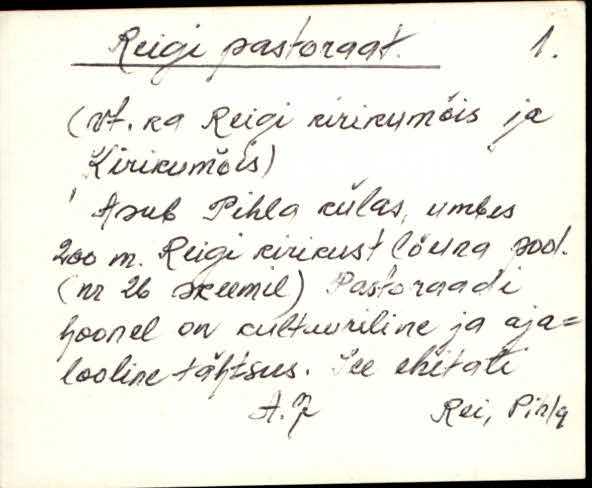 Reigi pastoraat. 1.
(vt. ka Reigi kirikumõis ja
Kirikumõis)
Asub Pihla külas, umbes
200 m. Reigi kirikust lõuna pool.
(nr 26 skeemil) Pastoraadi
hoonel on kultuuriline ja aja=
looline tähtsus. See ehitati
A. J Rei, Pihla